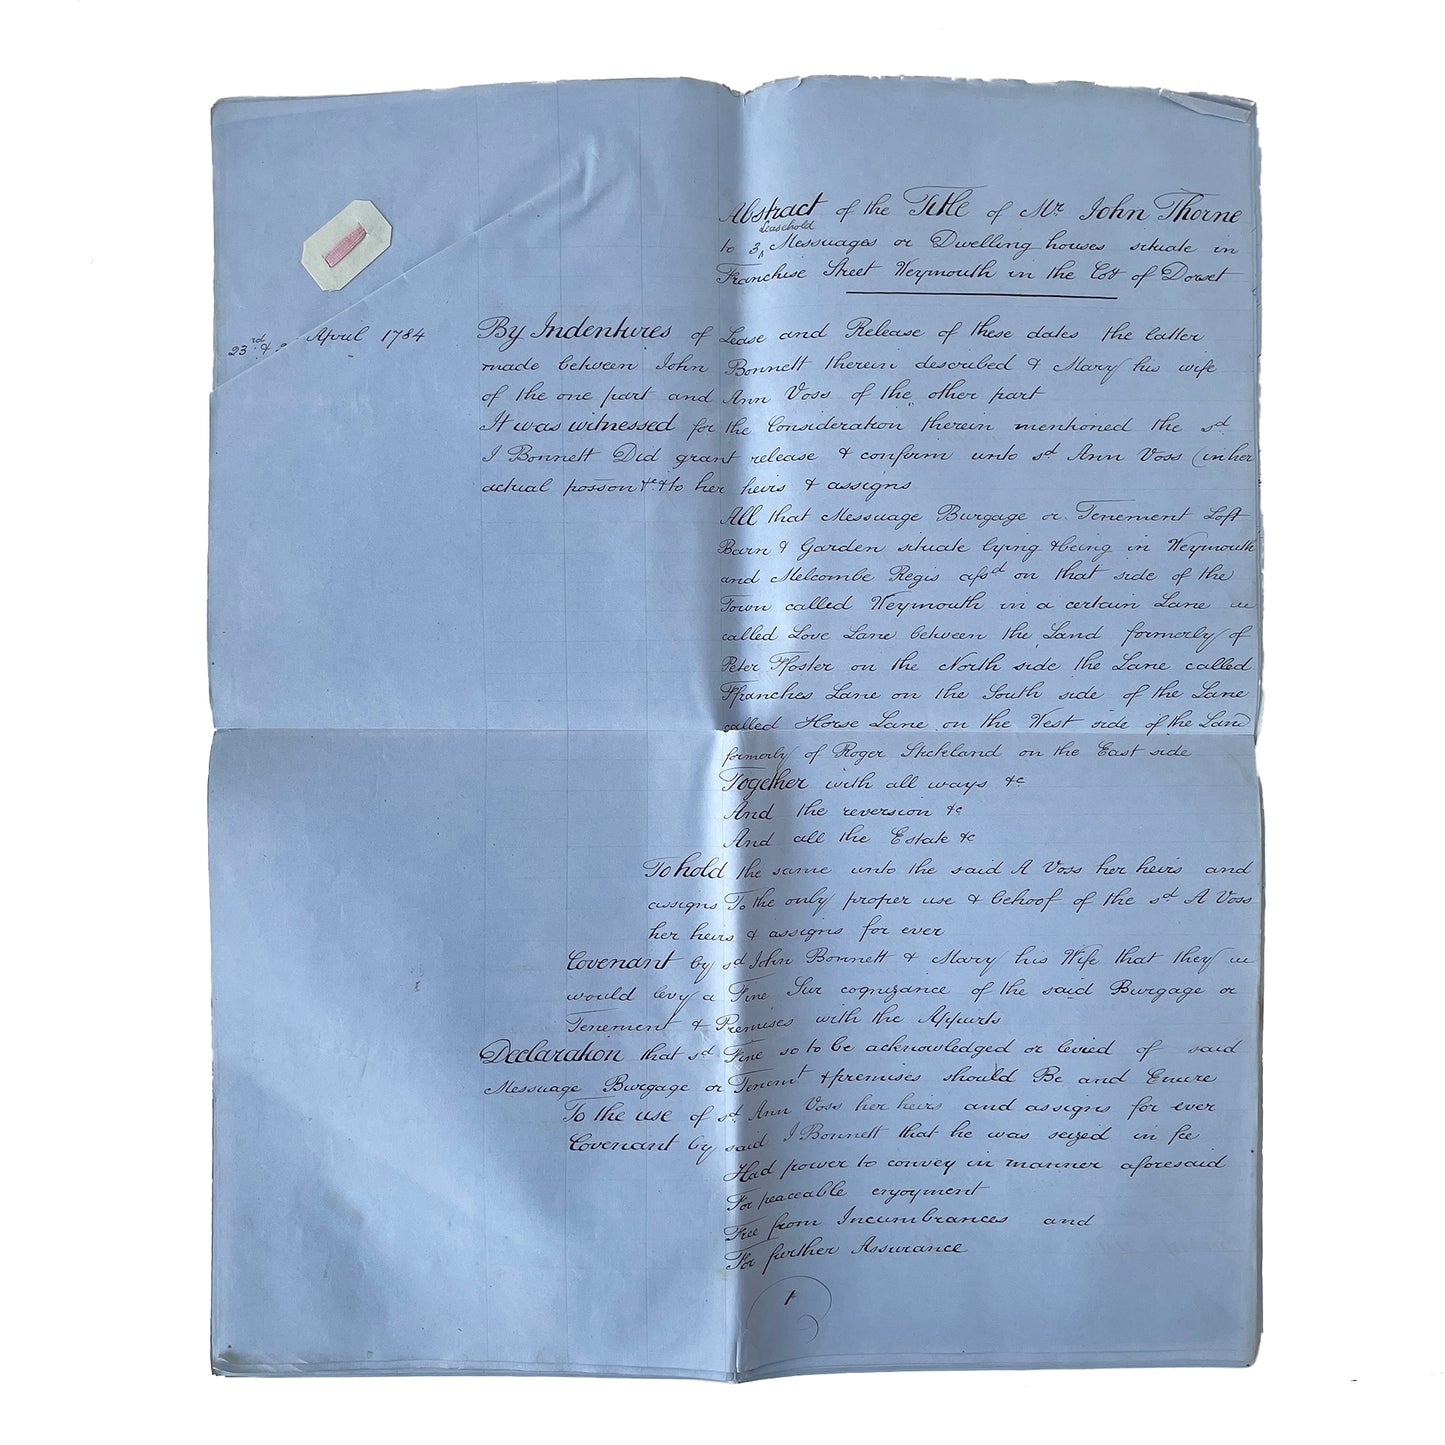 Abstract of the Title of Mr. John Thorne
Leasehold
to 3 ^ Messuages or Dwelling houses situate in
Franchise Street Weymouth in the Coy of Dorset
23rd & April 1784
By Indentures of Lease and Release of these dates the latter
made between John Bonnett therein described & Mary his wife
of the one part and Ann Voss of the other part
It was witnessed for the Consideration therein mentioned the sd.
J Bonnett Did grant release & confirm unto sd Ann Voss (in her
actual posson &c & to her heirs & assigns
All that Messuage Burgage or Tenement Loft
Barn & Garden situate lying & being in Weymouth
and Melcombe Regis afsd on that side of the
Town called Weymouth in a certain Lane
called Love Lane between the Land formerly of
Peter Ffoster on the North side the Lane called
Ffranches Lane on the South side of the Lane
called Horse Lane on the West side of the Land
formerly of Roger Stickland on the East side
Together with all ways &c
And the reversion &c
And all the Estate &c
To hold the same unto the said A Voss her heirs and
assigns To the only proper use & behoof of the sd A Voss
her heirs & assigns for ever
Covenant by sd John Bonnett & Mary his Wife that they
would levy a Fine Sur cognizance of the said Burgage or
Tenement & Premises with the Appurts
Declaration that sd Fine so to be acknowledged or levied of said
Messuage Burgage or Tenemt & premises should Be and Enure
To the use of sd. Ann Voss her heirs and assigns for ever
Covenant by said J Bonnett that he was seized in fee
Had power to convey in manner aforesaid
For peaceable enjoyment
Free from Incumbrances and
For further Assurance
1